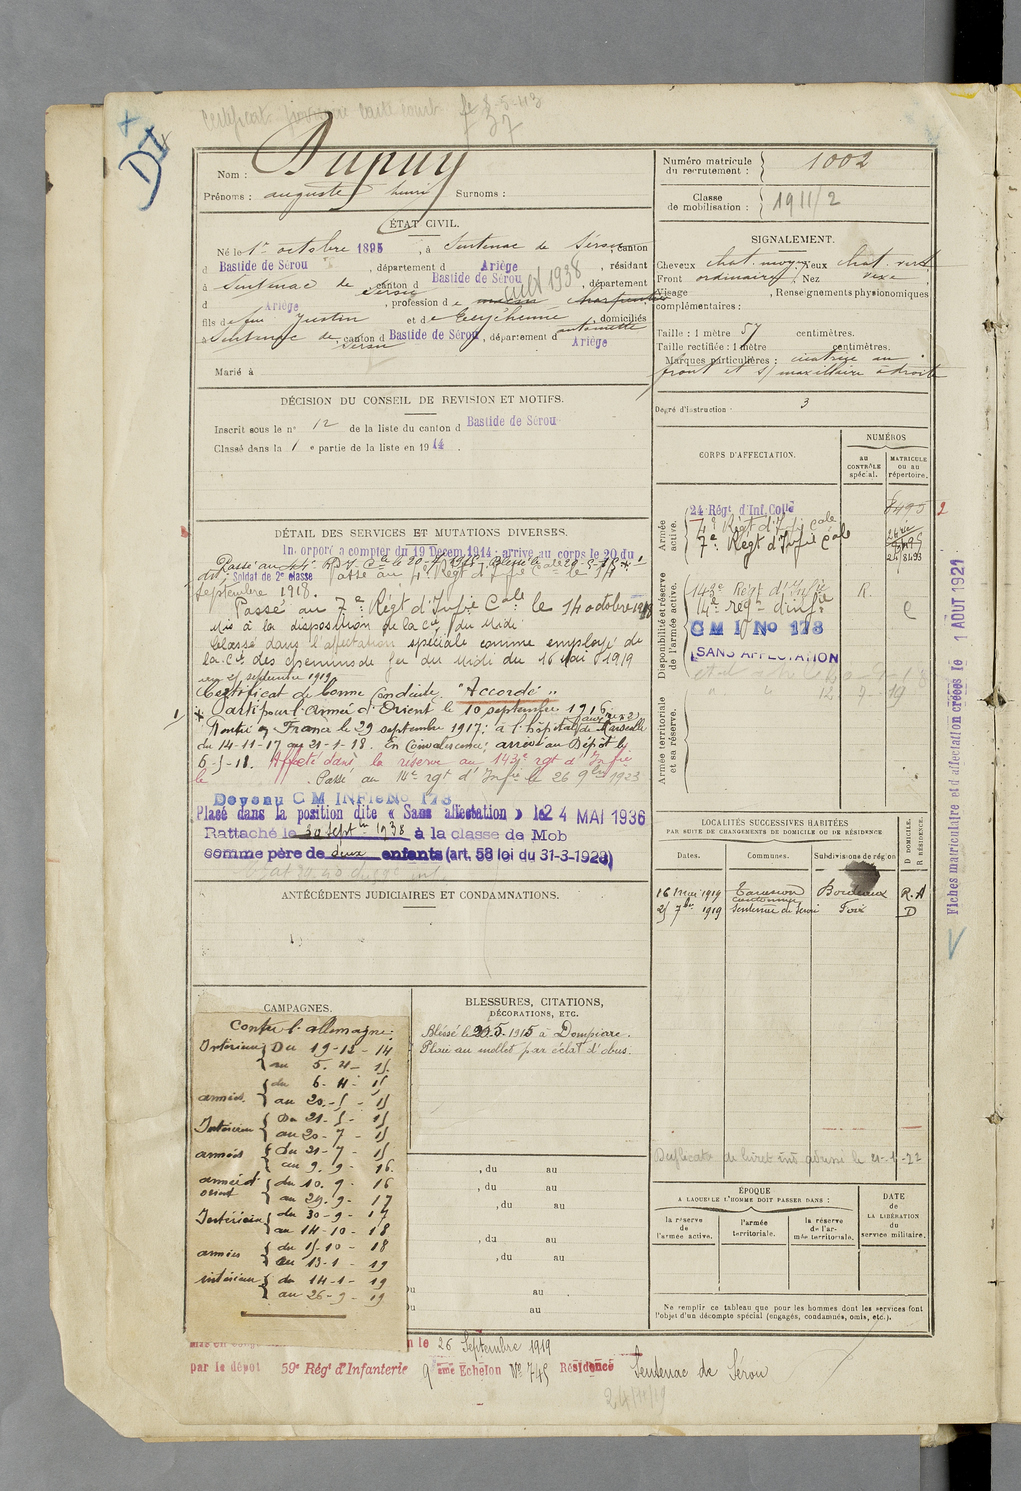 Certificat
-5-43
37
D
Nom : Dupuy
Prénoms : auguste henri Surnoms :
Numéro matricule du recrutement : 1002
Classe de mobilisation : 1911/2
ÉTAT CIVIL.
Né le 1er octobre 1895, à Sentenac de Sérou, canton
d Bastide de Sérou, département d Ariège, résidant
à Sentenac de Sérou canton d Bastide de Sérou, département
août 1938
d Ariège, profession de charpentier
fils de feu Justin et de Eugénie, domiciliés
antoinette
à Sentenac de Sérou canton d Bastide de Sérou, département d Ariège
Marié à
SIGNALEMENT.
Cheveux chat. moyen Yeux chat. vert
Front ordinaire, Nez
Visage , Renseignements physionomiques
complémentaires :
Taille : 1 mètre 57 centimètres.
Taille rectifiée : 1 mètre centimètres.
Marques particulières : cicatrice au
front et s/ maxillaire à droite
Degré d'instruction : 3
DÉCISION DU CONSEIL DE REVISION ET MOTIFS.
Inscrit sous le n° 12 de la liste du canton d Bastide de Sérou
Classé dans la 1 e partie de la liste en 1914
CORPS D'AFFECTATION.
NUMÉROS
AU CONTRÔLE spécial.
MATRICULE ou au répertoire.
Armée active.
24 Régt d'Inf. Cole
8495
2
4e Régt d'Infie Cole
7e Régt d'Infie Cole
Disponibilité et réserve de l'armée active.
143e Régt d'Infie
R.
14e regt d'infie
C
C M I No 178
SANS AFFECTATION
Armée territoriale et sa réserve.
DÉTAIL DES SERVICES ET MUTATIONS DIVERSES.
Incorporé a compter du 19 Décem. 1914 : arrivé au corps le 20 du
dit. Soldat de 2e classe Passé au 4e Régt d'Infie Cole le
septembre 1918.
Passé au 7e Régt d'Infie Cale le 14 octobre 1918
Mis à la disposition de la Cie du Midi
Classé dans l'affectation spéciale comme employé de
la Cie des chemins de fer du Midi du 16 Mai 1919
septembre 1919
Certificat de bonne Conduite "Accordé"
Parti pour l'armée d'Orient le 10 septembre 1916
Rentré en France le 29 septembre 1917; à l'hôpital de Marseille
du 14-11-17 au 21-1-18. En Convalescence; arrivé au Dépôt le
6-5-18. Affecté dans la réserve au 143e rgt d'Infie
le Passé au 14e rgt d'Infie le 26 9bre 1923
Devenu C M INFie No 178
Placé dans la position dite « Sans affectation » le 24 MAI 1936
Rattaché le 30 septbre 1938 à la classe de Mob
comme père de deux enfants (art. 58 loi du 31-3-1928)
ANTÉCÉDENTS JUDICIAIRES ET CONDAMNATIONS.
LOCALITÉS SUCCESSIVES HABITÉES
PAR SUITE DE CHANGEMENTS DE DOMICILE OU DE RÉSIDENCE
Dates. Communes. Subdivisions de région D DOMICILE. R RÉSIDENCE.
16 mai 1919 Tarascon Bordeaux R.A
cantonnier
25 7bre 1919 Sentenac de Sérou Foix D
Fiches matriculaire et d'affectation créées le 1 AOUT 1921
CAMPAGNES.
Contre l'allemagne.
Intérieur { Du 19-12-14
au 5-4-15
{ du 6-4-15
armées. au 20-5-15
Intérieur { Du 21-5-15
au 20-7-15
armées { du 21-7-15
au 9-9-16.
armée d'orient { du 10-9-16
au 29-9-17
Intérieur { du 30-9-17
au 14-10-18
armées { du 15-10-18
au 13-1-19
intérieur { du 14-1-19
au 26-9-19
BLESSURES, CITATIONS,
DÉCORATIONS, ETC.
Blessé le 20.5.1915 à Dompierre.
Plaie au mollet par éclat d'obus.
, du au
, du au
, du au
, du au
, du au
au
au
Duplicata de livret ind adressé le 21-1-22
ÉPOQUE
A LAQUELLE L'HOMME DOIT PASSER DANS :
la réserve de l'armée active.
l'armée territoriale.
la réserve de l'armée territoriale.
DATE DE LA LIBÉRATION du service militaire.
Ne remplir ce tableau que pour les hommes dont les services font
l'objet d'un décompte spécial (engagés, condamnés, omis, etc.).
le 26 Septembre 1919
par le dépôt 59e Régt d'Infanterie 9ème Echelon No 745 Résidence Sentenac de Sérou